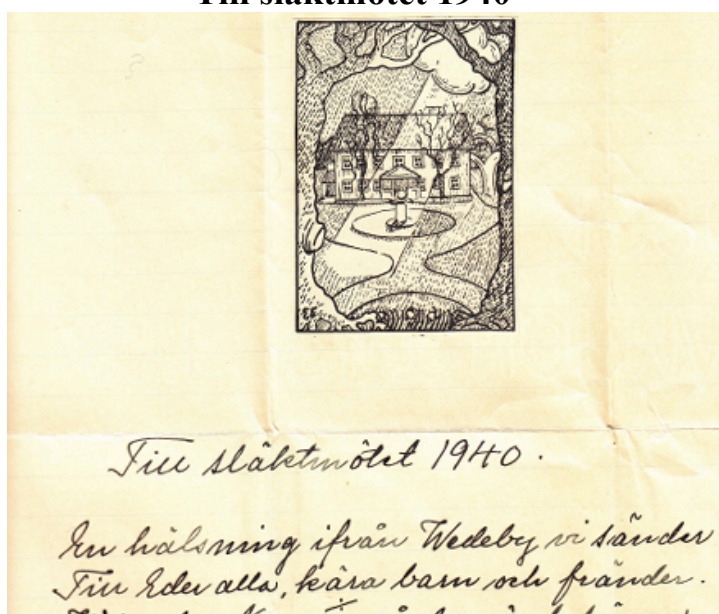 Till släktmötet 1940
EE
Till släktmötet 1940.
En hälsning ifrån Wedeby vi sänder
Till Eder alla, kära barn och fränder.